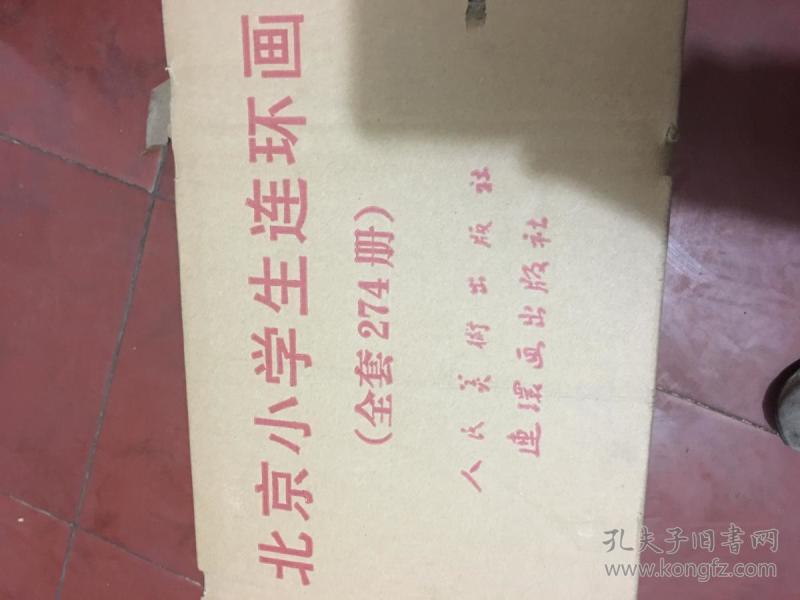 北京小学生连环画
(全套274册)
人民美術出版社
連環画出版社
孔夫子旧書网
www.kongfz.com